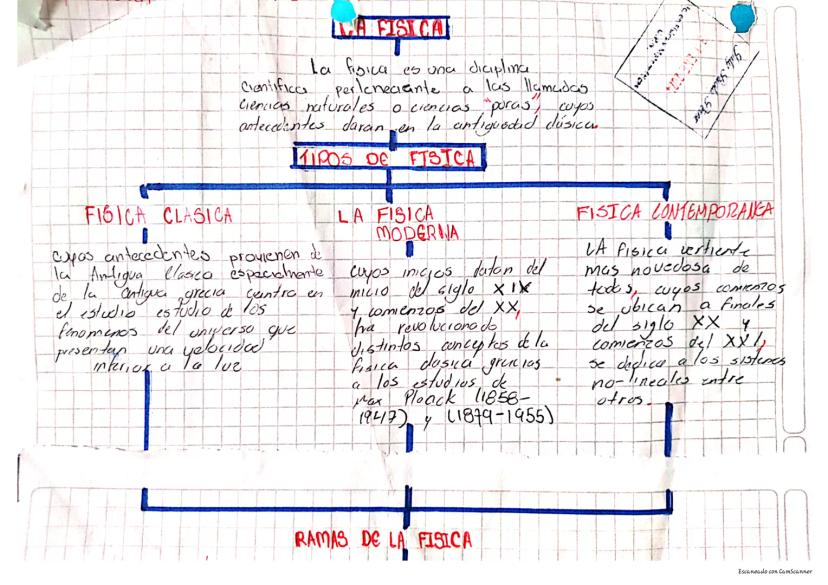 LA FISICA
La fisica es una diciplina
Cientifica perteneciente a las llamadas
ciencias naturales o ciencias "puras", cuyos
antecedentes daran en la antiguedad clásica.
TIPOS DE FISICA
FISICA CLASICA
cuyos antecedentes provienen de
la Antigua Clasica especialmente
de la antigua grecia centra en
el estudio estudio de los
fenomenos del universo que
presentan una velocidad
inferior a la luz
LA FISICA
MODERNA
cuyos inicios datan del
inicio del siglo XIX
y comienzos del XX,
ha revolucionado
distintos conceptos de la
fisica clasica gracias
a los estudios de
Max Planck (1858-
1947) y (1879-1955)
FISICA CONTEMPORANEA
LA fisica vertiente
mas novedosa de
todas, cuyos comienzos
se ubican a finales
del siglo XX y
comienzos del XXI,
se dedica a los sistemas
no-lineales entre
otros.
RAMAS DE LA FISICA
Escaneado con CamScanner